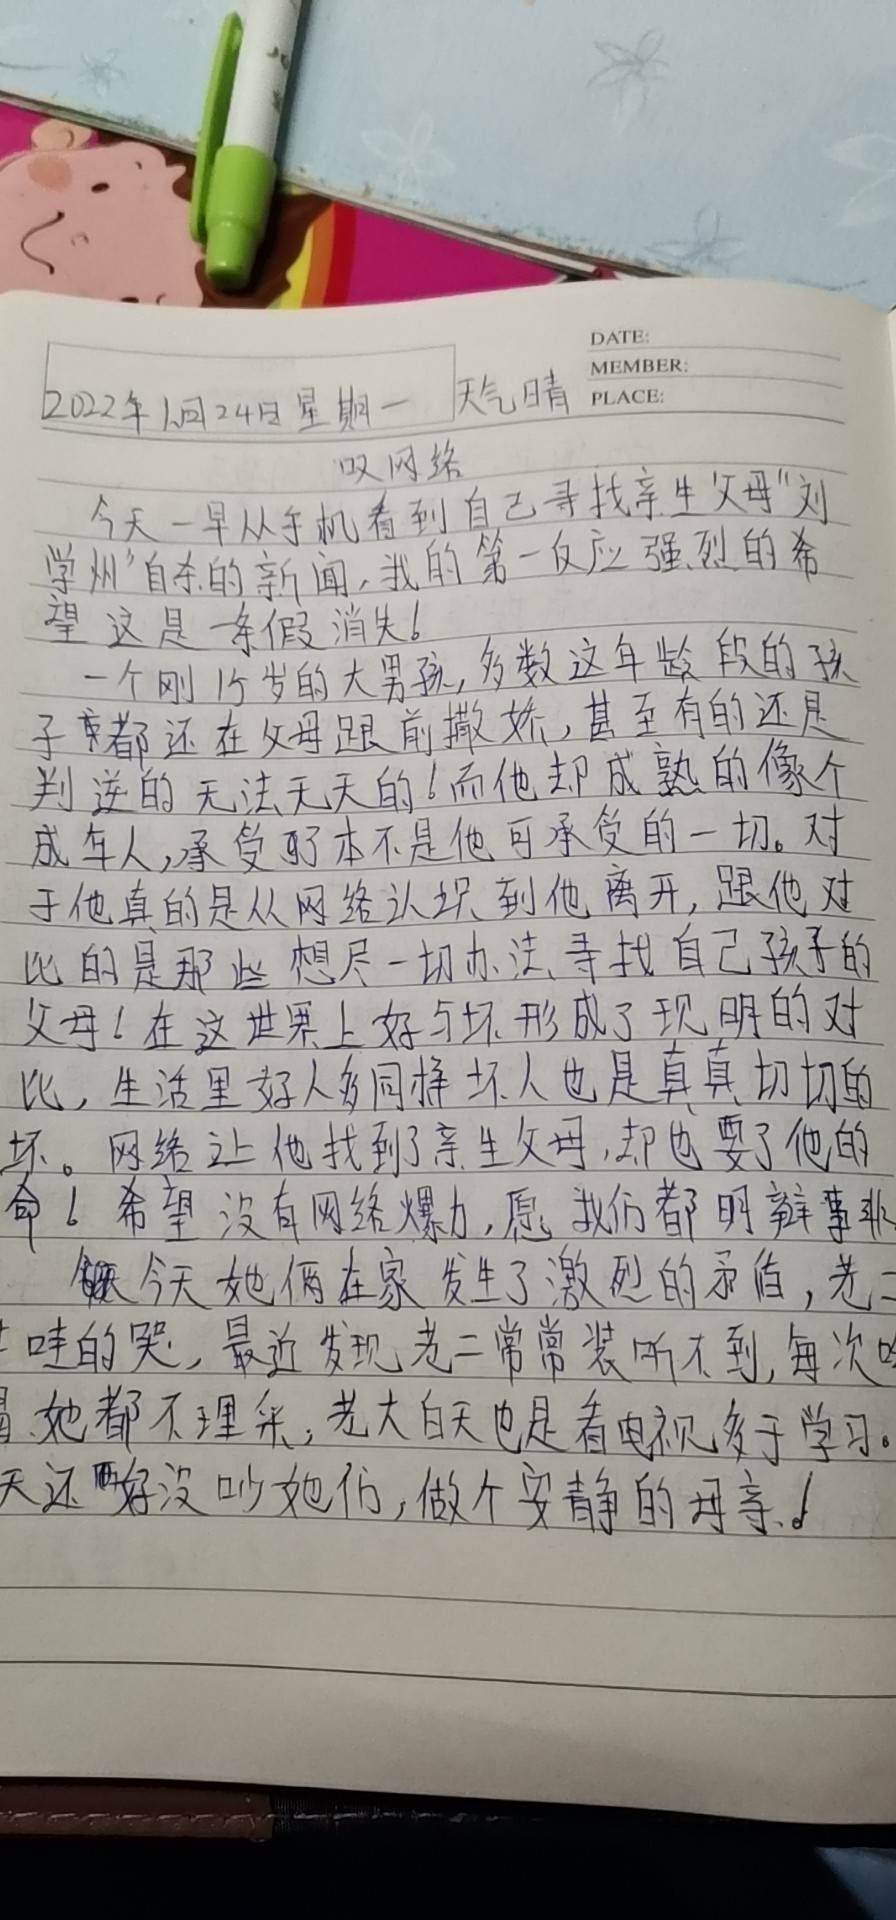 DATE:
MEMBER:
2022年1月24日星期一 天气晴 PLACE:
叹网络
今天一早从手机看到自己寻找亲生父母"刘
学州"自杀的新闻，我的第一反应强烈的希
望这是一条假消失！
一个刚15岁的大男孩，多数这年龄段的孩
子都还在父母跟前撒娇，甚至有的还是
判逆的无法无天的！而他却成熟的像个
成年人，承受了本不是他可承受的一切。对
于他真的是从网络认识到他离开，跟他对
比的是那些想尽一切办法寻找自己孩子的
父母！在这世界上好与坏形成了现明的对
比，生活里好人多同样坏人也是真真切切的
坏。网络让他找到了亲生父母，却也要了他的
命！希望没有网络爆力，愿我们都明辩事非
今天她俩在家发生了激烈的矛盾，老二
哇的哭，最近发现老二常常装听不到，每次
她都不理采，老大白天也是看电视多于学习。
天还好没吵她们，做个安静的母亲！